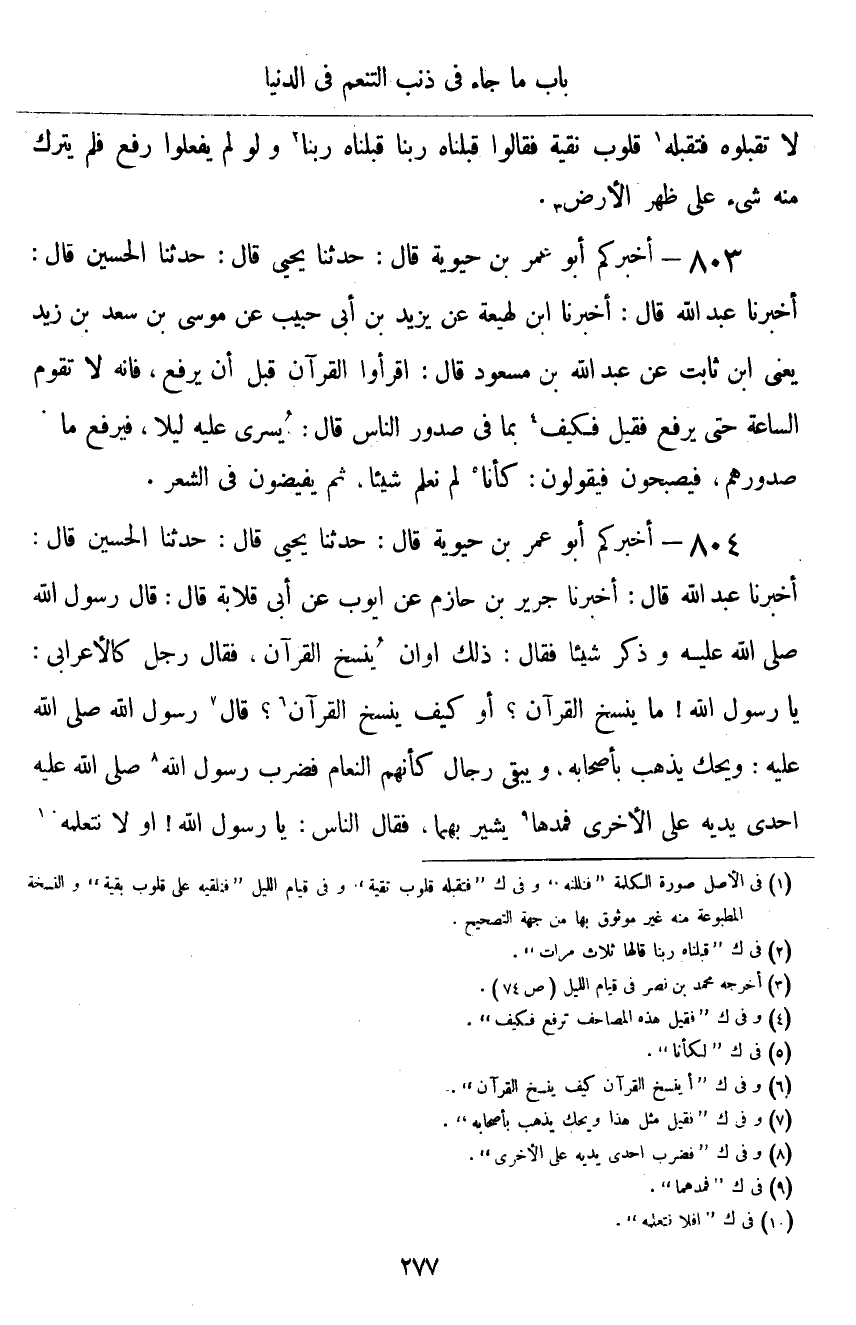 باب ما جاء فى ذنب التنعم فى الدنيا
لا تقبلوه فتقبله١ قلوب نقية فقالوا قبلناه ربنا قبلناه ربنا٢ و لو لم يفعلوا رفع فلم يترك
منه شىء على ظهر الأرض٣ .
٨٠٣ – أخبركم أبو عمر بن حيوية قال : حدثنا يحيى قال : حدثنا الحسين قال :
أخبرنا عبد الله قال : أخبرنا ابن لهيعة عن يزيد بن أبى حبيب عن موسى بن سعد بن زيد
يعنى ابن ثابت عن عبد الله بن مسعود قال : اقرأوا القرآن قبل أن يرفع ، فانه لا تقوم
الساعة حتى يرفع فقيل فكيف٤ بما فى صدور الناس قال : يُسرى عليه ليلا ، فيرفع ما
صدورهم ، فيصبحون فيقولون : كأنا٥ لم نعلم شيئا ، ثم يفيضون فى الشعر .
٨٠٤ – أخبركم أبو عمر بن حيوية قال : حدثنا يحيى قال : حدثنا الحسين قال :
أخبرنا عبد الله قال : أخبرنا جرير بن حازم عن ايوب عن أبى قلابة قال : قال رسول الله
صلى الله عليه و ذكر شيئا فقال : ذلك اوان يُنسخ القرآن ، فقال رجل كالأعرابى :
يا رسول الله ! ما ينسخ القرآن ؟ أو كيف ينسخ القرآن٦ ؟ قال٧ رسول الله صلى الله
عليه : ويحك يذهب بأصحابه ، و يبقى رجال كأنهم النعام فضرب رسول الله٨ صلى الله عليه
احدى يديه على الأخرى فمدها٩ يشير بهما ، فقال الناس : يا رسول الله ! او لا نتعلمه١٠
(١) فى الأصل صورة الكلمة “ ” و فى ك “فتقبله قلوب تقية” و فى قيام الليل “فنلقيه على قلوب بقية” و النسخة
المطبوعة منه غير موثوق بها من جهة التصحيح .
(٢) فى ك “قبلناه ربنا قالها ثلاث مرات” .
(٣) أخرجه محمد بن نصر فى قيام الليل (ص ٧٤) .
(٤) و فى ك “فقيل هذه المصاحف ترفع فكيف” .
(٥) فى ك “لكأنا” .
(٦) و فى ك “أ ينسخ القرآن كيف ينسخ القرآن” .
(٧) و فى ك “نقيل مثل هذا ويحك يذهب بأصحابه” .
(٨) و فى ك “فضرب احدى يديه على الأخرى” .
(٩) فى ك “فمدهما” .
(١٠) فى ك “افلا نتعلمه” .
٢٧٧